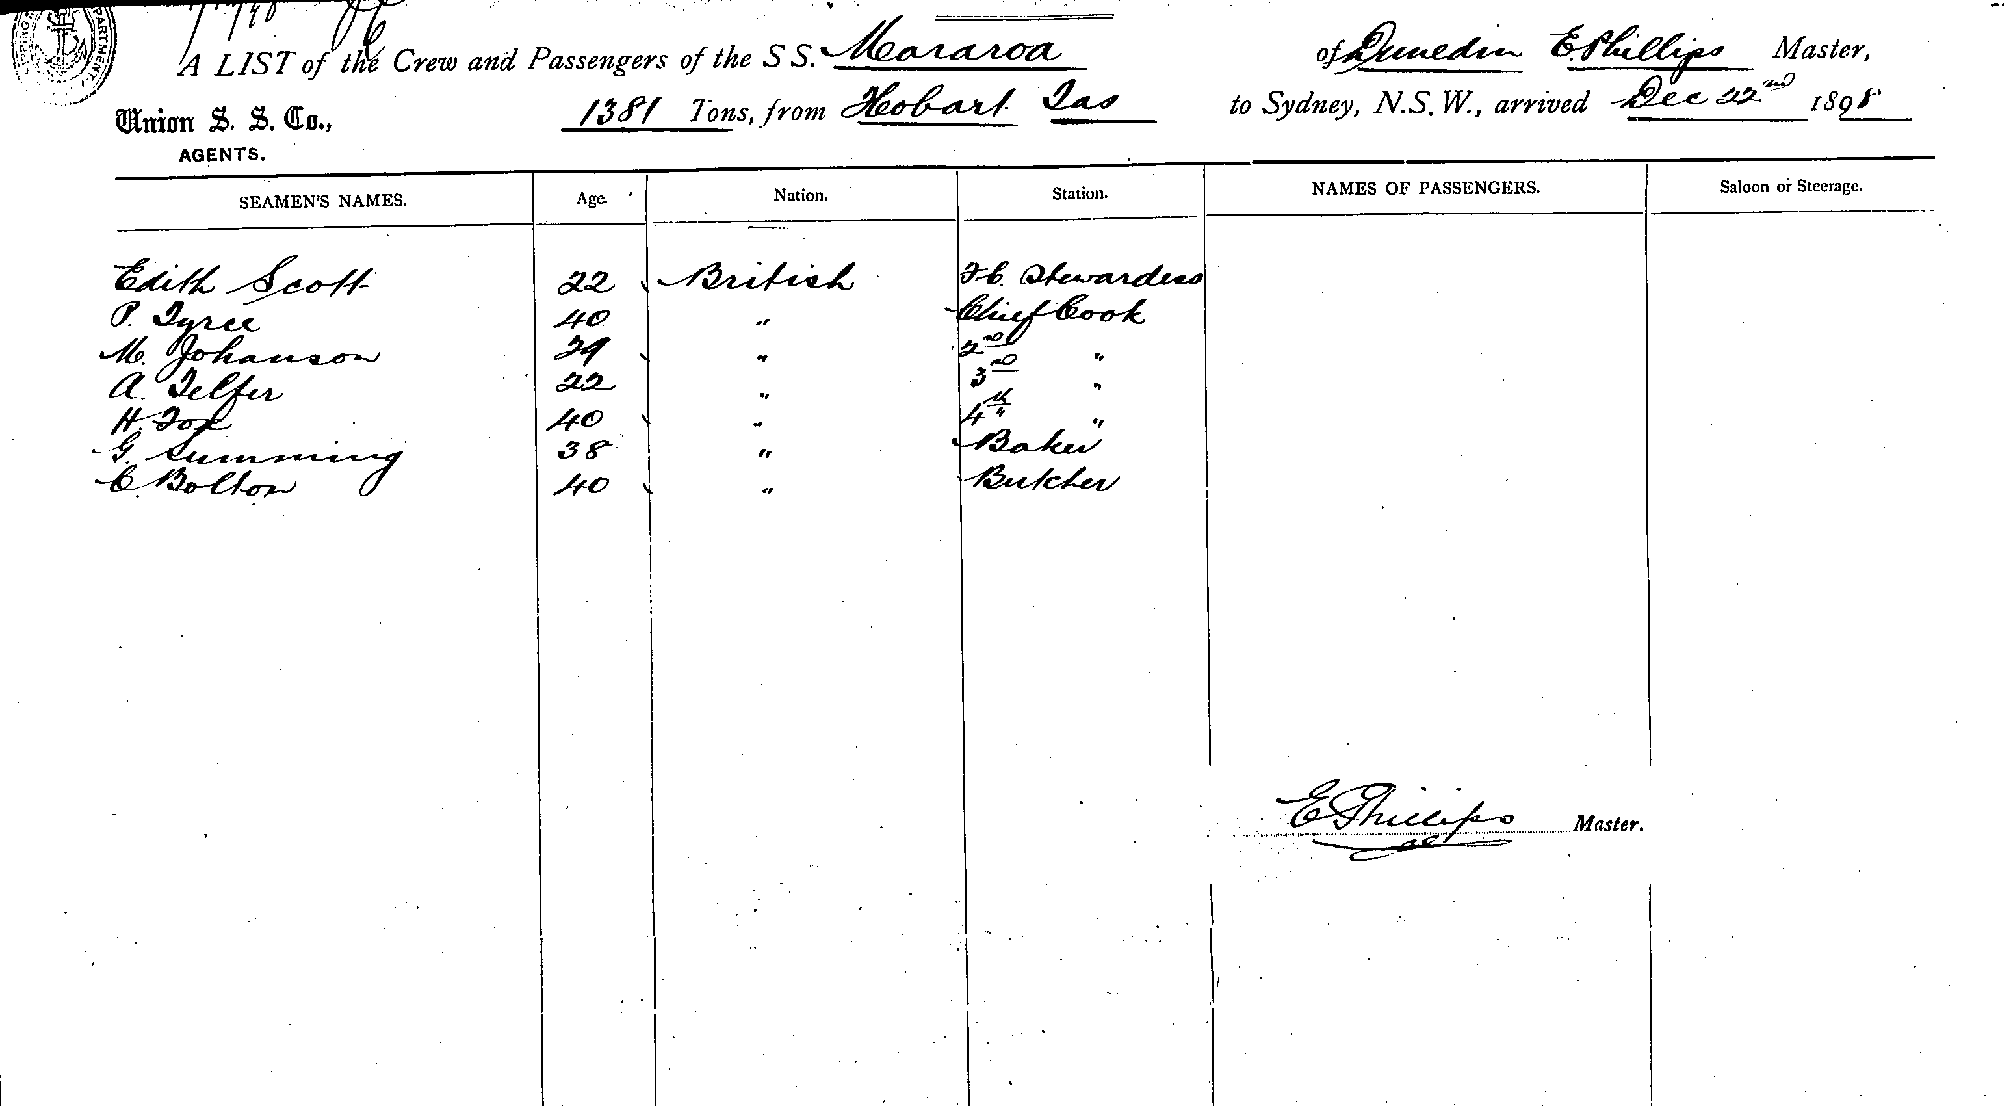 A LIST of the Crew and Passengers of the S S. Mararoa of Dunedin E. Phillips Master,
Union S. S. Co., 1381 Tons, from Hobart Tas to Sydney, N.S.W., arrived Dec 22nd 1898
AGENTS.
SEAMEN'S NAMES. Age. Nation. Station. NAMES OF PASSENGERS. Saloon or Steerage.
Edith Scott 22 British F.C. Stewardess
P. Tyree 40 " Chief Cook
M. Johanson 29 " 2nd "
A. Telfer 22 " 3rd "
H. Fox 40 " 4th "
G. Summing 38 " Baker
C. Bolton 40 " Butcher
E Phillips Master.